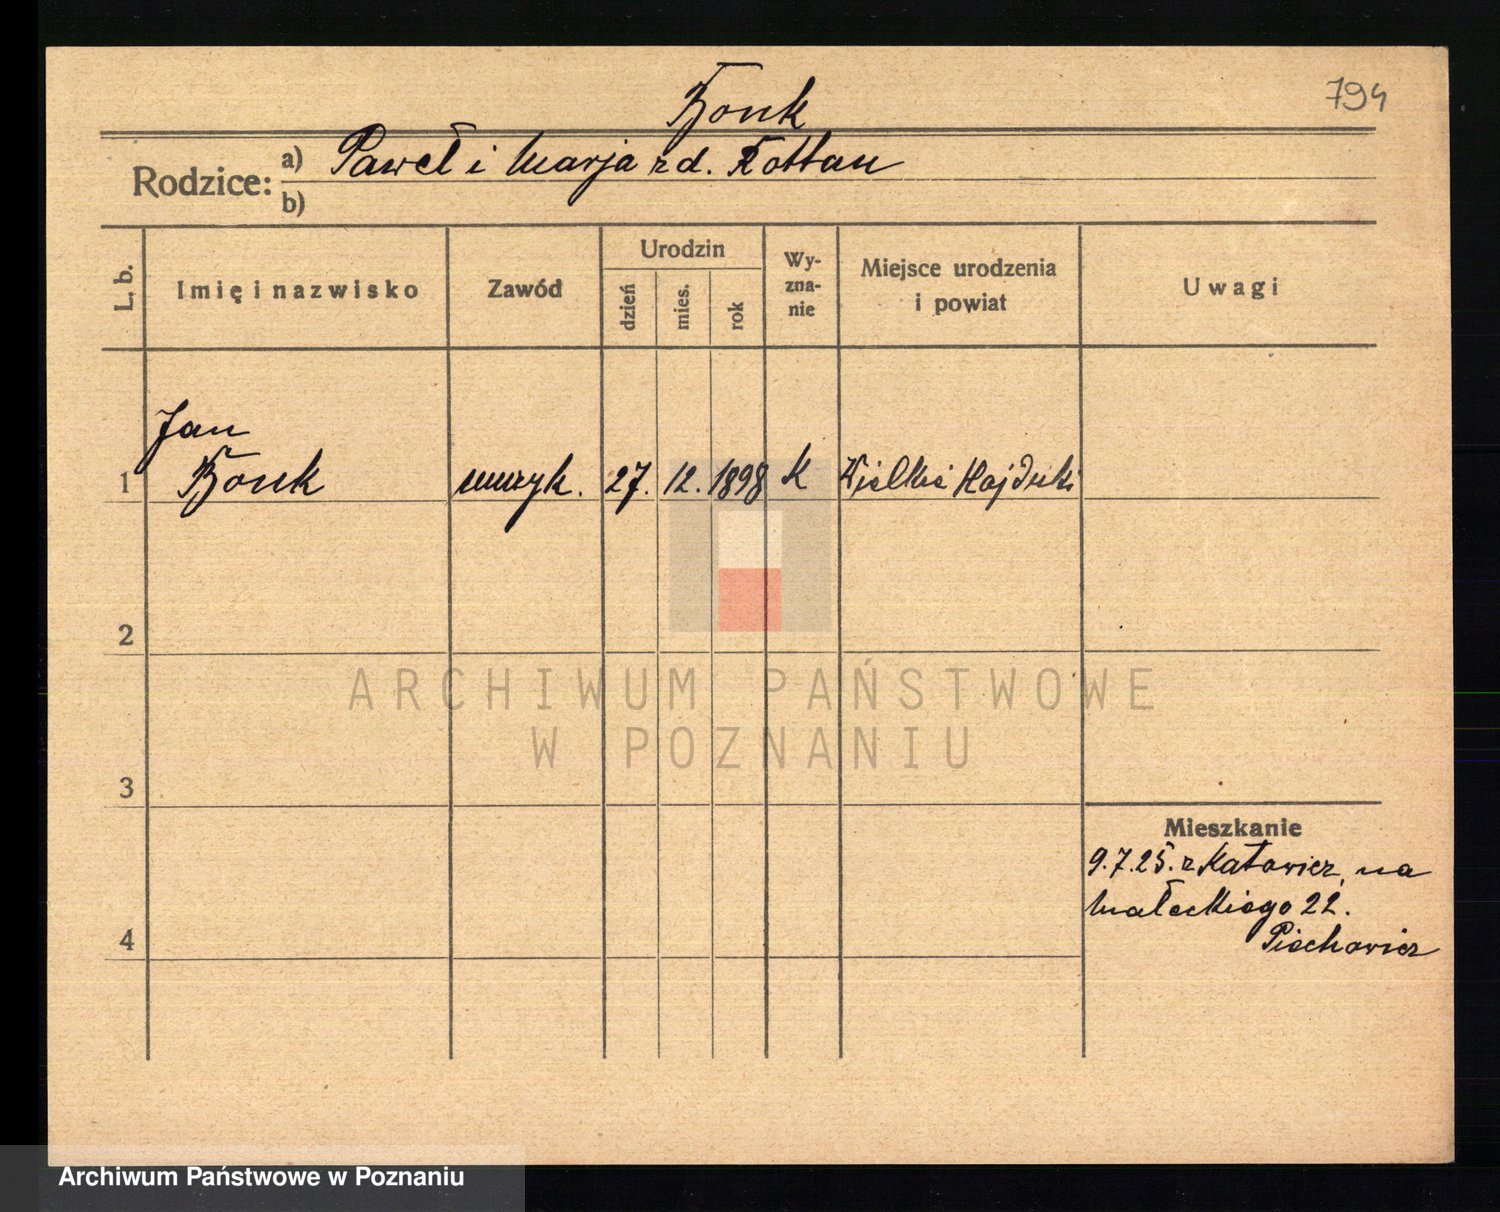 794
Bonk
Rodzice: a) Paweł i Marja z d. Kottan
b)
L. b. Imię i nazwisko Zawód Urodzin dzień mies. rok Wy-zna-nie Miejsce urodzenia i powiat Uwagi
Jan
1 Bonk muzyk. 27. 12. 1898 K Wielkie Hajduki
2
ARCHIWUM PAŃSTWOWE
W POZNANIU
3
Mieszkanie
9.7.25. z Katowicz, na
Małeckiego 22.
4 Piechowicz
Archiwum Państwowe w Poznaniu